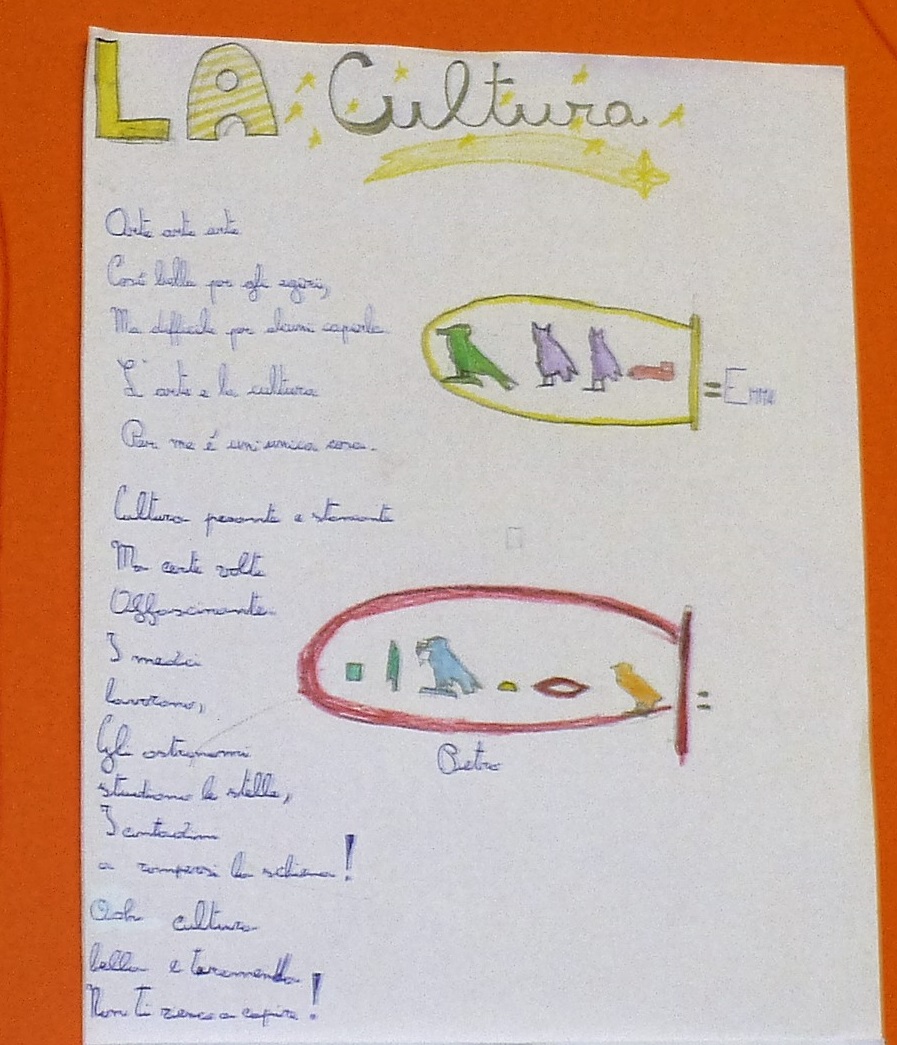 LA Cultura
Arte arte arte
Così bella per gli egizi,
Ma difficile per alcuni capirla
L'arte e la cultura
= Emma
Per me é un'unica cosa.
Cultura pesante e stancante
Ma certe volte
Affascinante.
I medici
lavorano,
=
Gli astronomi
Pietro
studiano le stelle,
I contadini
a rompersi la schiena!
Ooh cultura
bella e tremenda
Non ti riesco a capire!